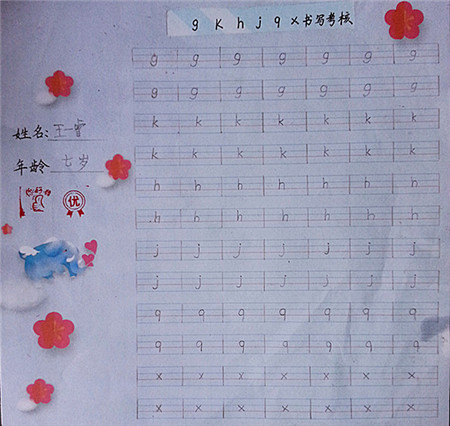 g k h j q x 书写考核
g g g g g g g
g g g g g g g
k k k k k k k
姓名: 王一睿
k k k k k k k
年龄 七岁
h h h h h h h
优
h h h h h h h
j j j j j j j
j j j j j j j
q q q q q q q
q q q q q q q
x x x x x x x
x x x x x x x